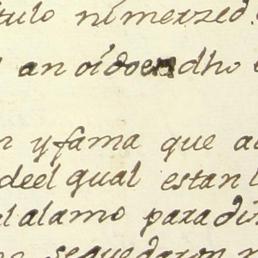 tulo ni merzed.
an oido en dho
n y fama que a
deel qual estan l
el alamo para di
se quedaron n